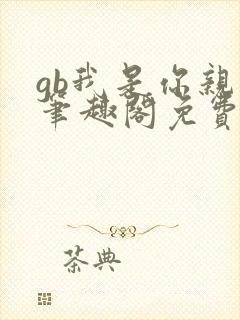 gb我是你亲
笔趣阁免费
茶典